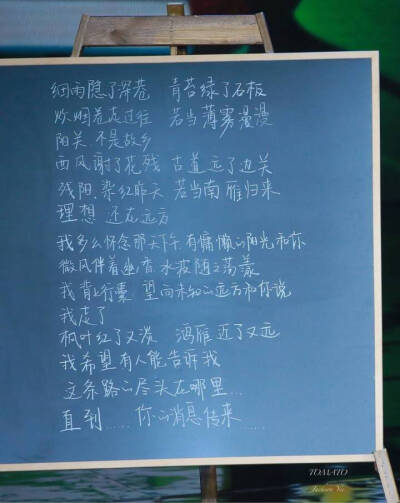 细雨隐了深巷 青苔绿了石板
炊烟卷走过往 若当薄雾漫漫
阳关 不是故乡
西风谢了花残 古道远了边关
残阳 染红昨天 若当南雁归来
理想 还在远方
我多么怀念那天下午 有慵懒的阳光和你
微风伴着幽香 水波随之荡漾
我背上行囊 望向未知的远方和你说
我走了
枫叶红了又淡 鸿雁近了又远
我希望有人能告诉我
这条路的尽头在哪里...
直到...... 你的消息传来......
TOMATO